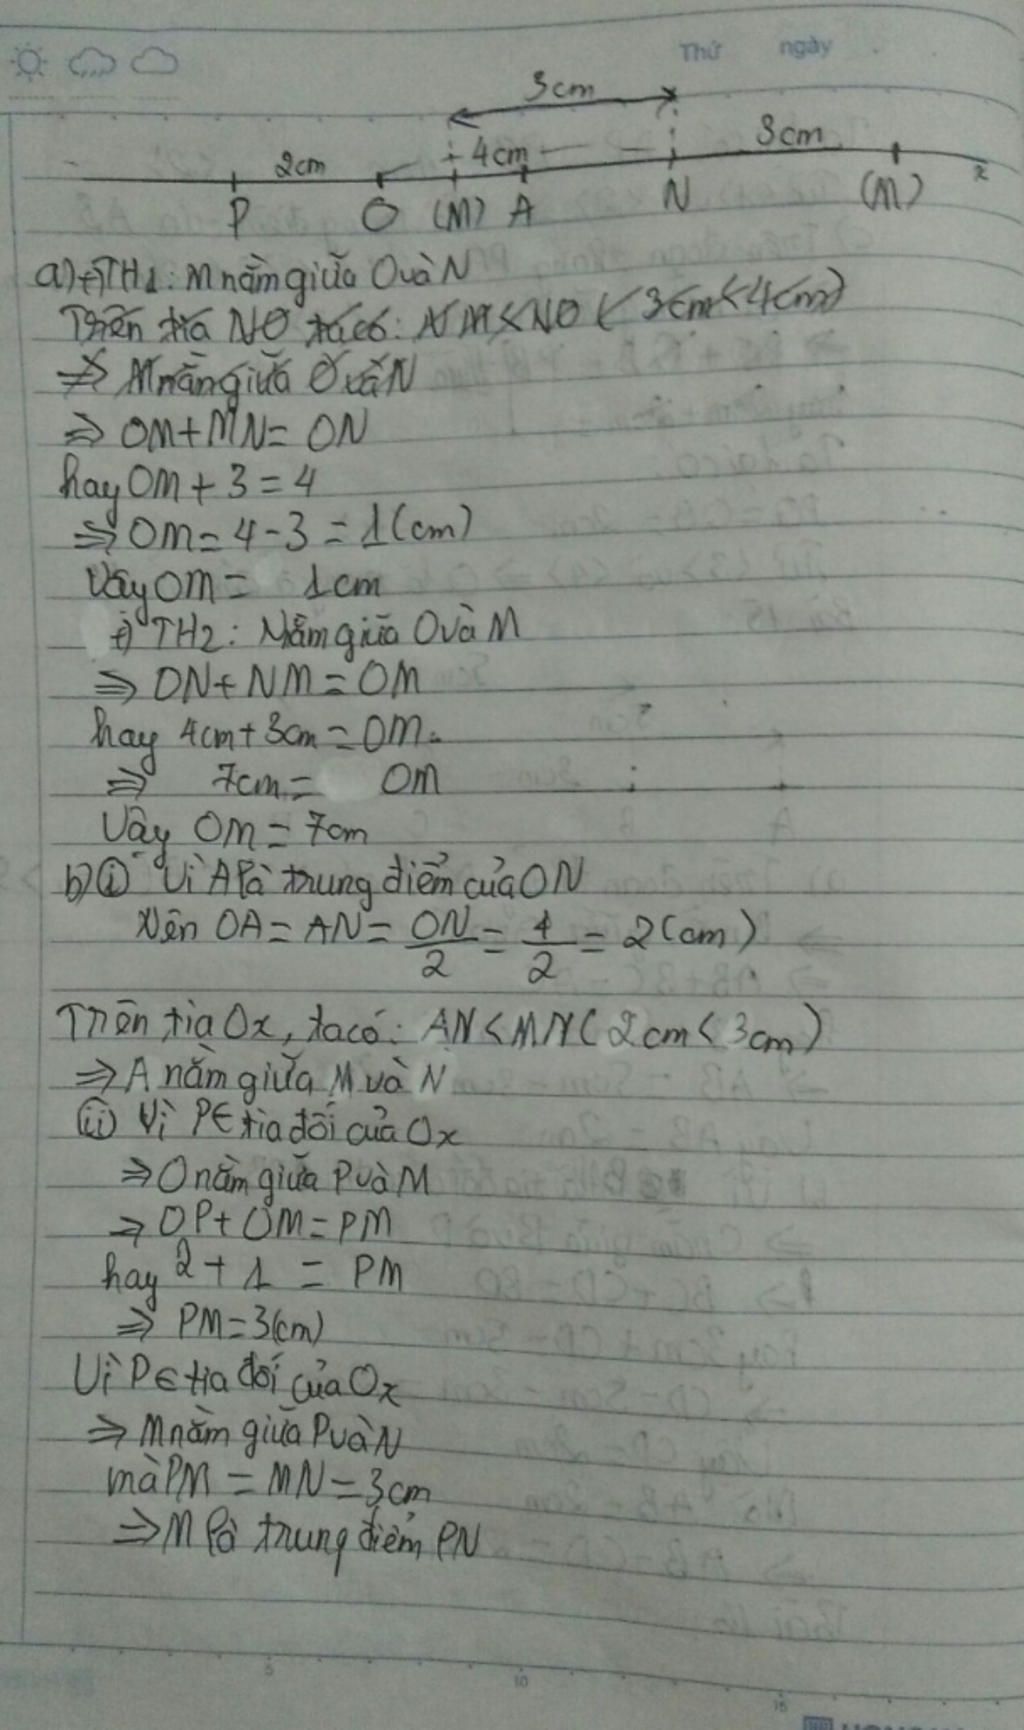 Thứ ngày
3cm
2cm 4cm 3cm
P O (M) A N (M) x
a) +) TH1: M nằm giữa O và N
Trên tia NO ta có: NM < NO (3cm < 4cm)
=> M nằm giữa O và N
=> OM + MN = ON
hay OM + 3 = 4
=> OM = 4 - 3 = 1 (cm)
Vậy OM = 1cm
+) TH2: Nằm giữa O và M
=> ON + NM = OM
hay 4cm + 3cm = OM.
=> 7cm = OM
Vậy OM = 7cm
b) (i) Vì A là trung điểm của ON
Nên OA = AN = ON/2 = 4/2 = 2 (cm)
Trên tia Ox, ta có: AN < MN (2cm < 3cm)
=> A nằm giữa M và N
(ii) Vì P ∈ tia đối của Ox
=> O nằm giữa P và M
=> OP + OM = PM
hay 2 + 1 = PM
=> PM = 3(cm)
Vì P ∈ tia đối của Ox
=> M nằm giữa P và N
mà PM = MN = 3cm
=> M là trung điểm PN
5 10 15